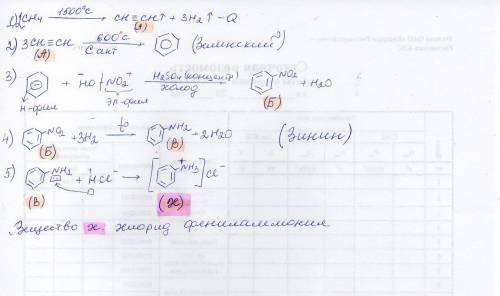 1) 2CH₄ 1500°C → CH≡CH↑ + 3H₂↑ -Q
(А)
2) 3CH≡CH 600°C, C акт → (Зелинский)
(А)
3) + HO NO₂⁺ H₂SO₄ (концентр) холод → NO₂ + H₂O
Н-фил Эл-фил (Б)
4) NO₂ + 3H₂ t° → NH₂ + 2H₂O (Зинин)
(Б) (В)
5) NH₂ + HCl⁻ → [ NH₃⁺ ] Cl⁻
(В) (х)
Вещество х. хлорид фениламмония